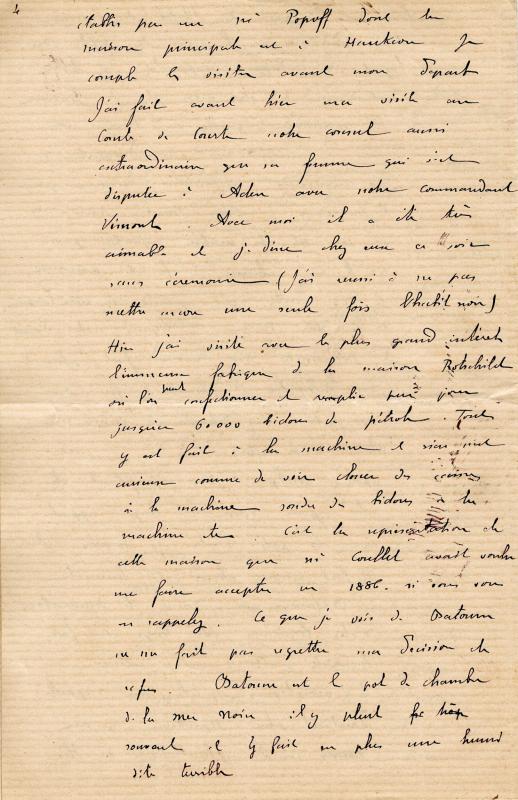 4
établis par un Mr Popoff dont la
maison principale est à Hankeou Je
compte la visiter avant mon départ
J'ai fait avant hier ma visite au
Comte de notre consul aussi
extraordinaire que sa femme qui s'est
disputée à Aden avec notre commandant
Vimont. Avec moi il a été très
aimable et je dîne chez eux ce soir
sans cérémonie (J'ai réussi à ne pas
mettre encore une seule fois l'habit noir)
Hier j'ai visité avec le plus grand intérêt
l'immense fabrique de la maison Rotschild
où l'on peut confectionner et remplir par jour
jusque 60000 bidons de pétrole Tout
y est fait à la machine et rien n'est
curieux comme de voir clouer des caisses
à la machine souder des bidons à la
machine etc. C'est la représentation de
cette maison que Mr avait voulu
me faire accepter en 1886. si vous vous
en rappelez. Ce que je vois de Batoum
ne me fait pas regretter ma décision de
refus. Batoum est le pot de chambre
de la mer Noire il y pleut trop
souvent et il y fait en plus une humi
dité terrible